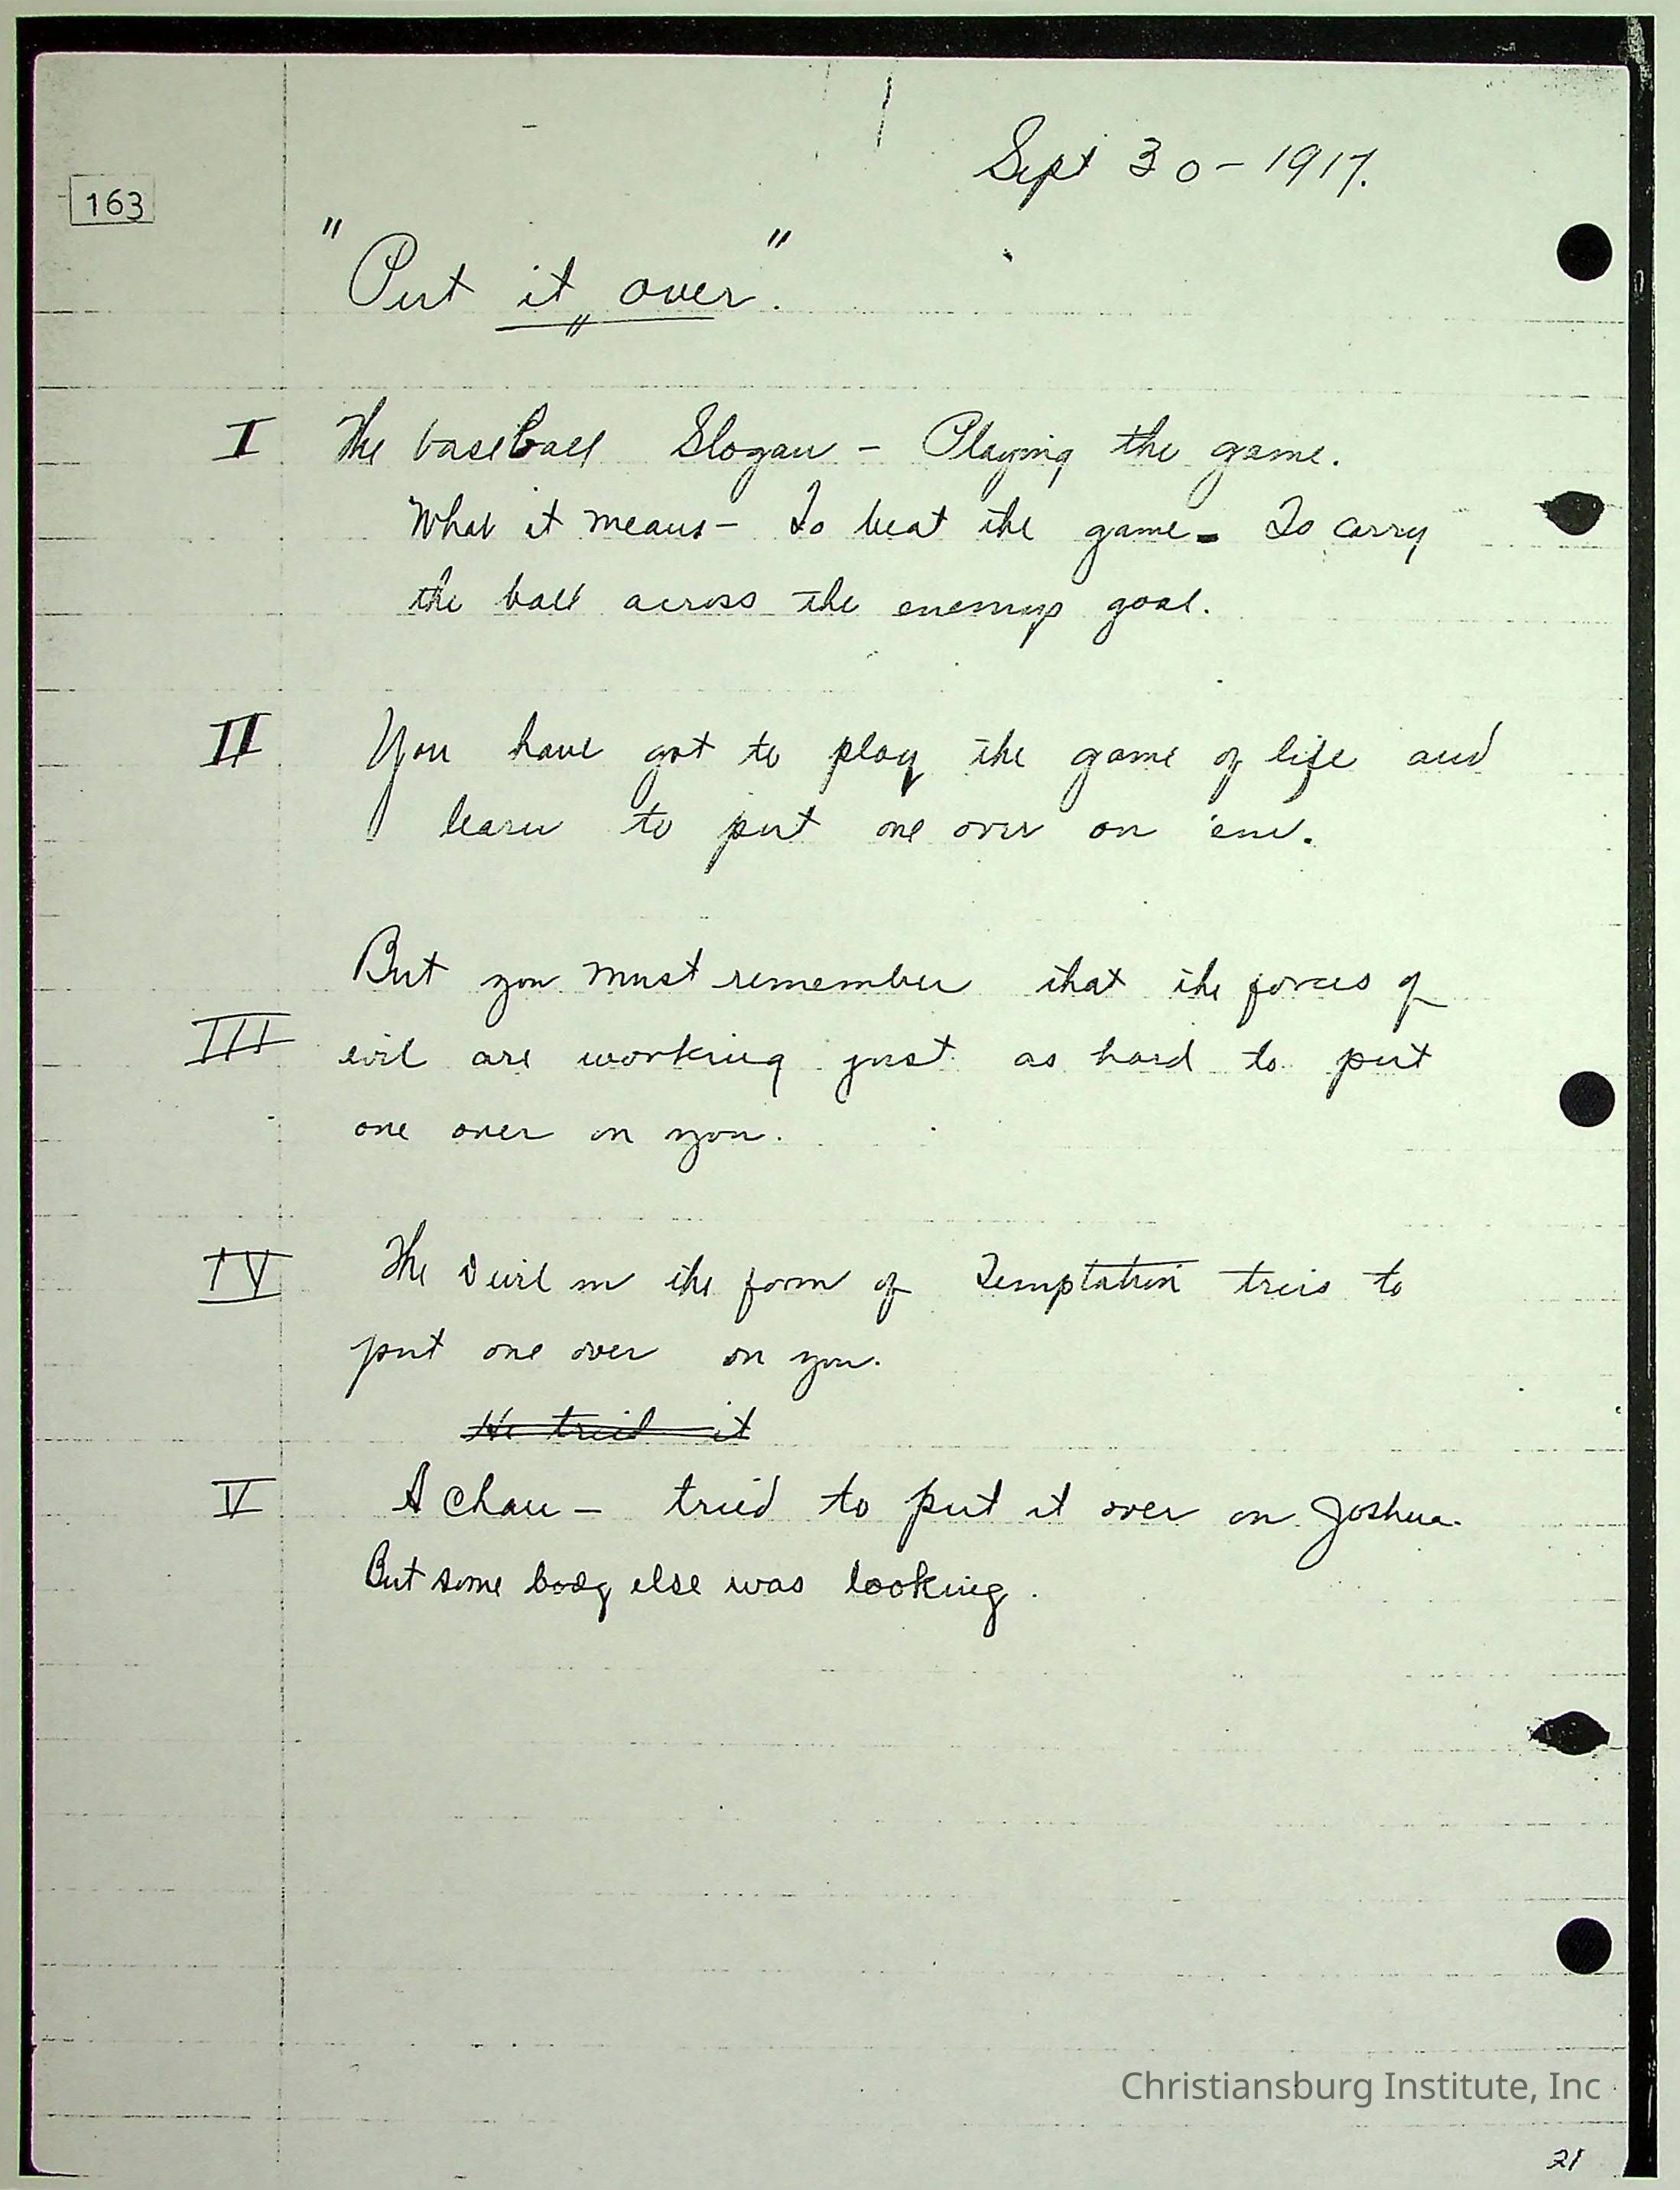 Sept 30 - 1917.
163
"Put it over."
I The baseball Slogan - Playing the game.
What it means - To beat the game - To carry
the ball across the enemys goal.
II You have got to play the game of life and
learn to put one over on 'em.
But you must remember that the forces of
III evil are working just as hard to put
one over on you.
IV The Devil in the form of Temptation tries to
put one over on you.
He tried it
V Achan - tried to put it over on Joshua.
But some body else was looking.
Christiansburg Institute, Inc
21